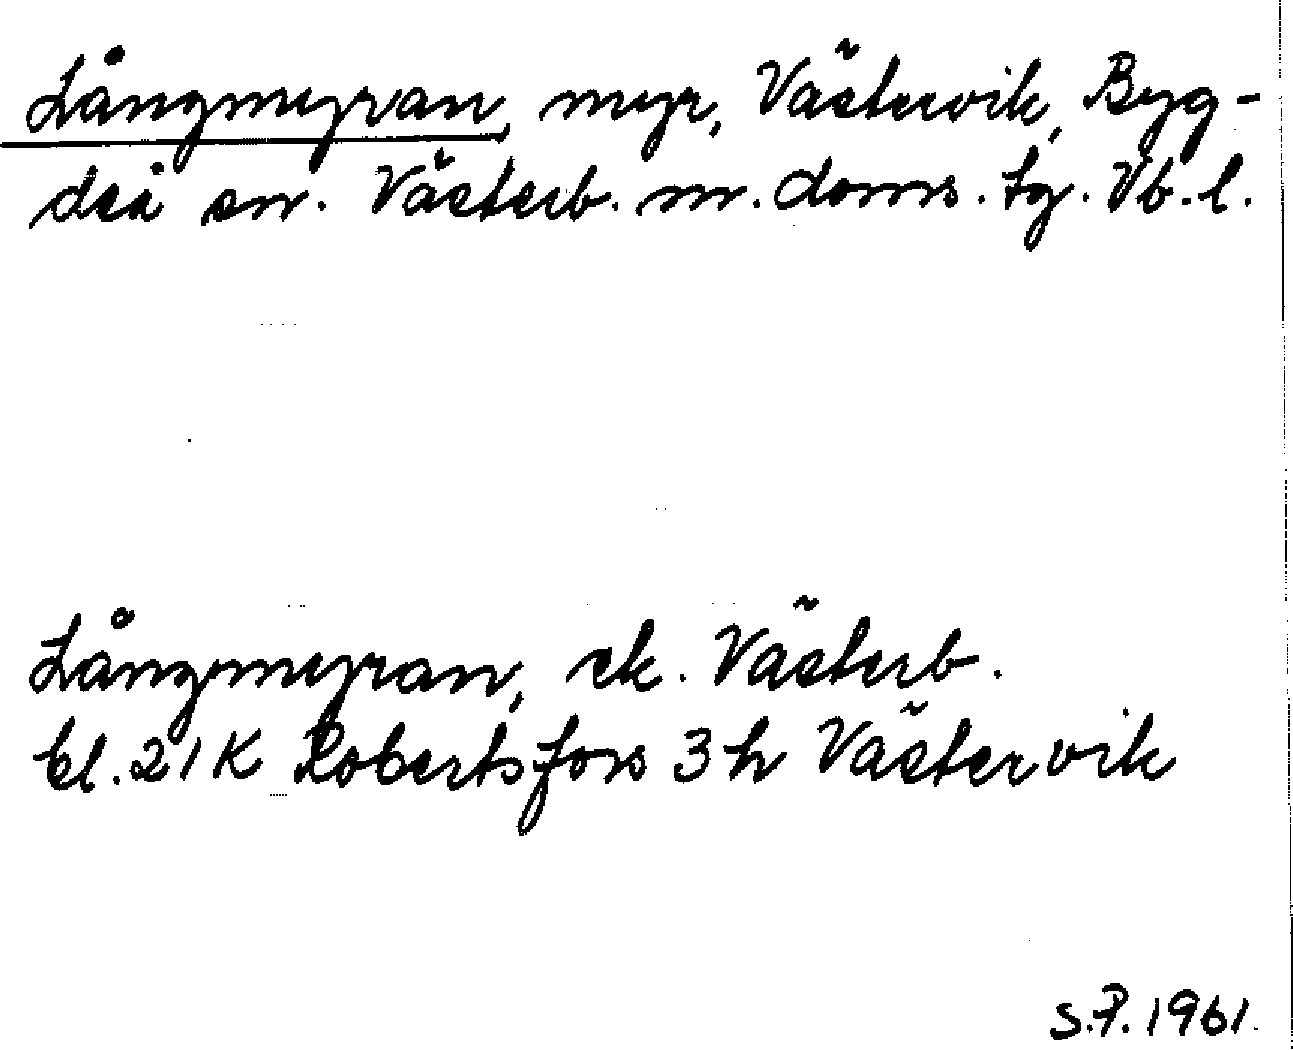 Långmyran, myr, Västervik, Byg-
deå sn. Västerb. n. doms. tg. Vb. l.
Långmyran, ek. Västerb.
bl. 21 K Robertsfors 3 h Västervik
S.P. 1961